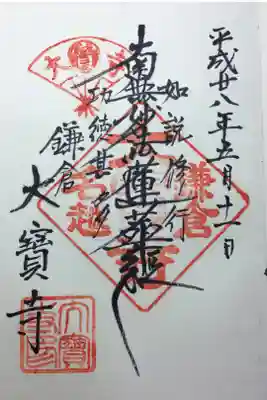 平成廿八年五月十一日
如説修行
南無妙法蓮華経
功徳甚多
鎌倉
大寳寺
鎌倉
名越
大寳